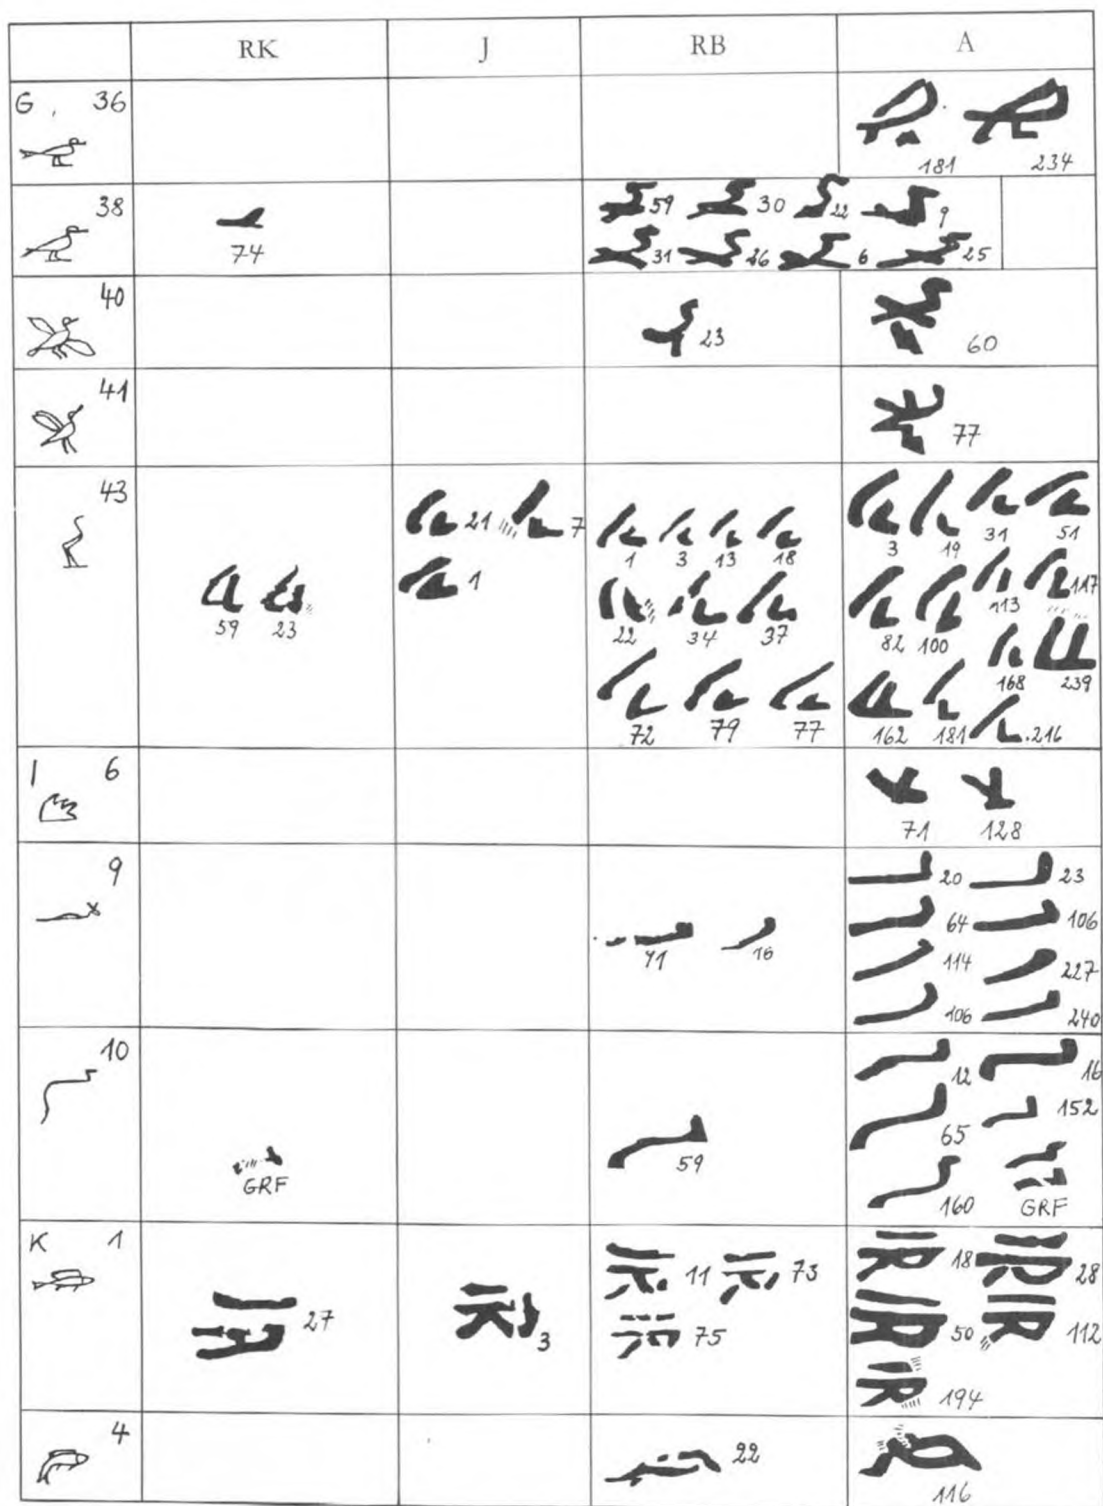 RK J RB A
G 36
181 234
38
74
59 30 22 9
31 26 6 25
40
23
60
41
77
43
59 23
21 7
1
1 3 13 18
22 34 37
72 79 77
3 19 31 51
82 100 113 117
168 239
162 181 216
I 6
71 128
9
16
20 23
64 106
114 227
106 240
10
GRF
59
12 16
65 152
160 GRF
K 1
27
3
11 73
75
18 28
50 112
194
4
22
116